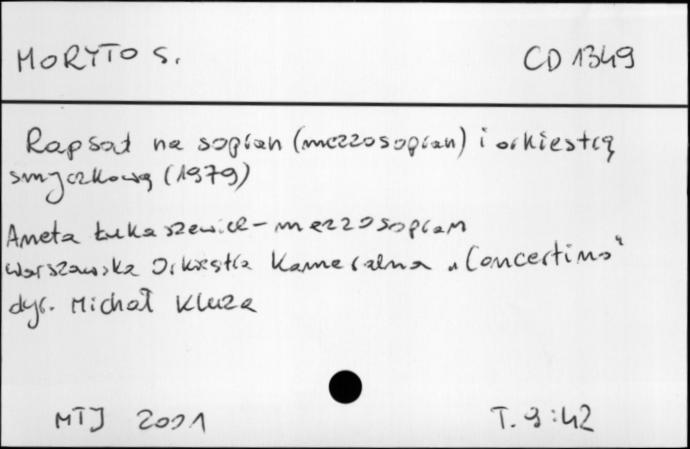 MORYTO S.
CD 1349
Rapsod na sopran (mezzosopran) i orkiestrę
smyczkową (1979)
Aneta Łukaszewicz - mezzosopran
Warszawska Orkiestra Kameralna „Concertino"
dyr. Michał Kluza
MTJ 2001
T. 9:42